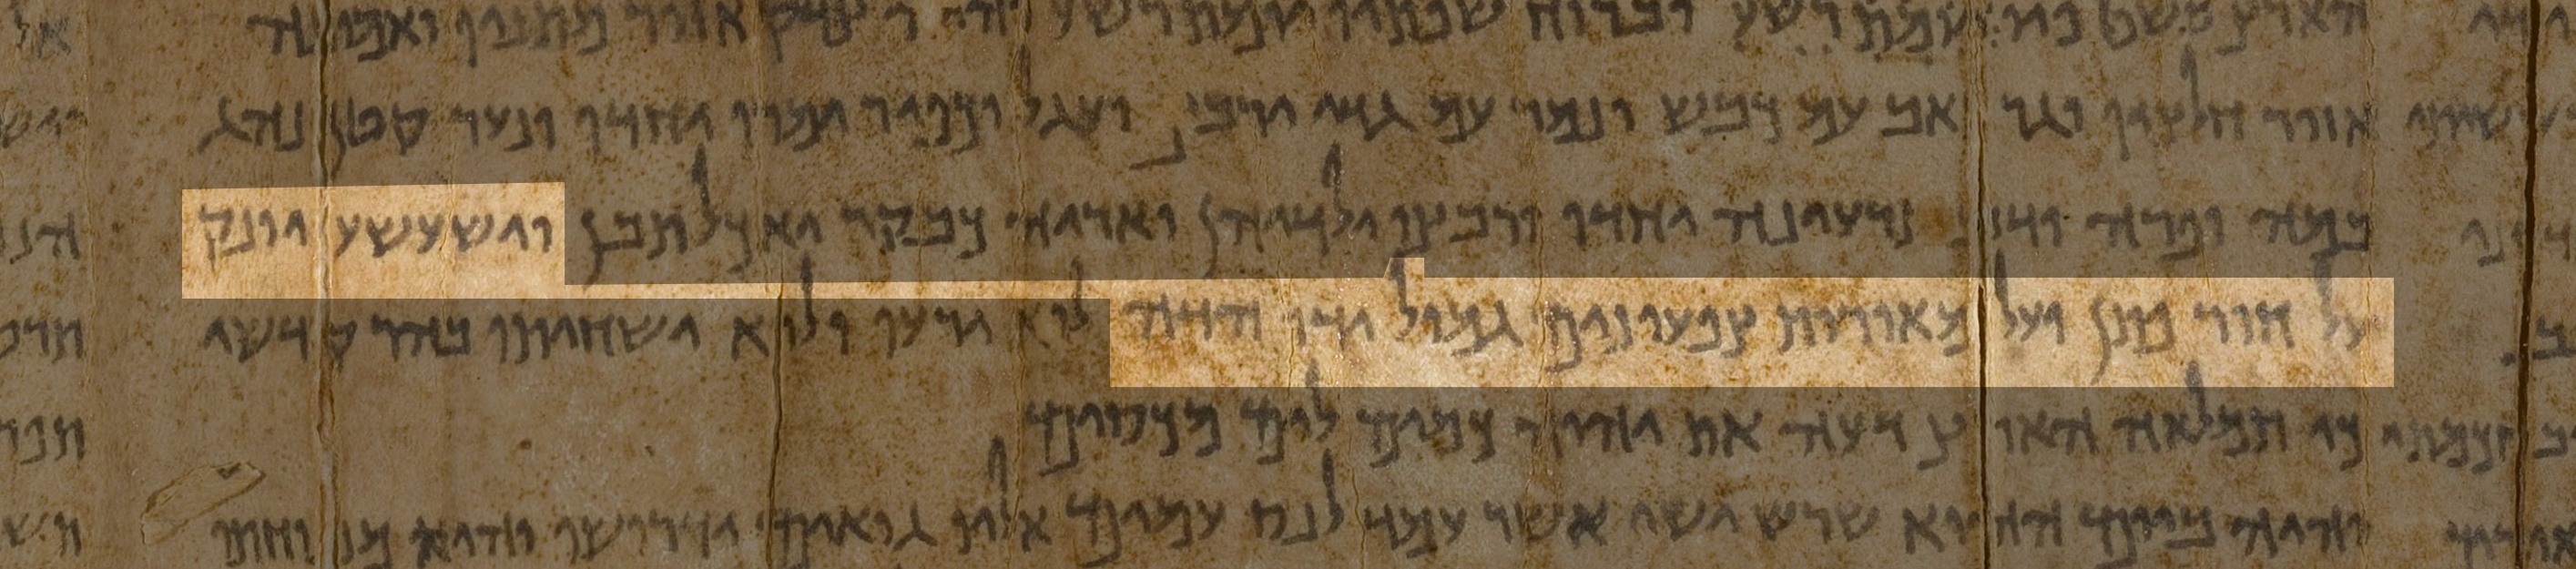 הארץ בשבט פיו יומת רשע וברוח שפתיו יומת רשע והיה צדק אזור מתניו ואמונה
אזור חלציו וגר זאב עם כבש ונמר עם גדי ירבץ ועגל וכפיר ימרו יחדו ונער קטן נהג
במה ופרה ודוב תרעינה יחדו ורבצו ילדיהן ואריה כבקר יאכל תבן וישעשע יונק
על חור פתן ועל מאורות צפעונים גמול ידו הדיה לוא ירעו ולוא ישחיתו בהר קדשי
כי תמלאה הארץ דעה את יהוה כמים לים מכסים
והיה ביום ההיא שרש ישי אשר עמד לנס עמים אליו גואים ידרושו והיא מנוחתו